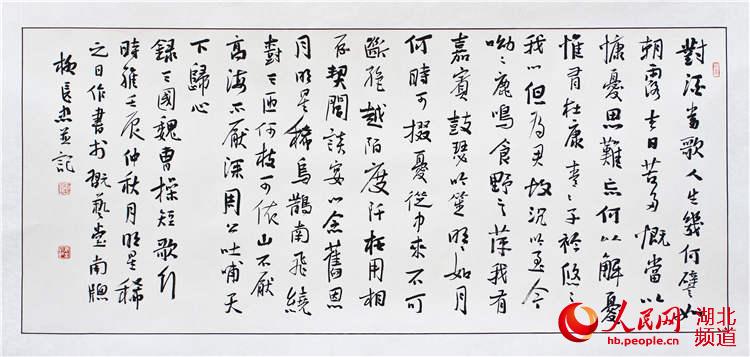 對酒當歌人生幾何譬如
朝露去日苦多慨當以
慷憂思難忘何以解憂
惟有杜康青〻子衿悠〻
我心但為君故沉吟至今
呦〻鹿鳴食野之苹我有
嘉賓鼓瑟吹笙明〻如月
何時可掇憂從中來不可
斷絕越陌度阡枉用相
存契闊談宴心念舊恩
月明星稀烏鵲南飛繞
樹三匝何枝可依山不厭
高海不厭深周公吐哺天
下歸心
錄三國魏曹操短歌行
時維壬辰仲秋月明星稀
之日作書於藝堂南牕
並記
人民网 湖北频道
hb.people.cn